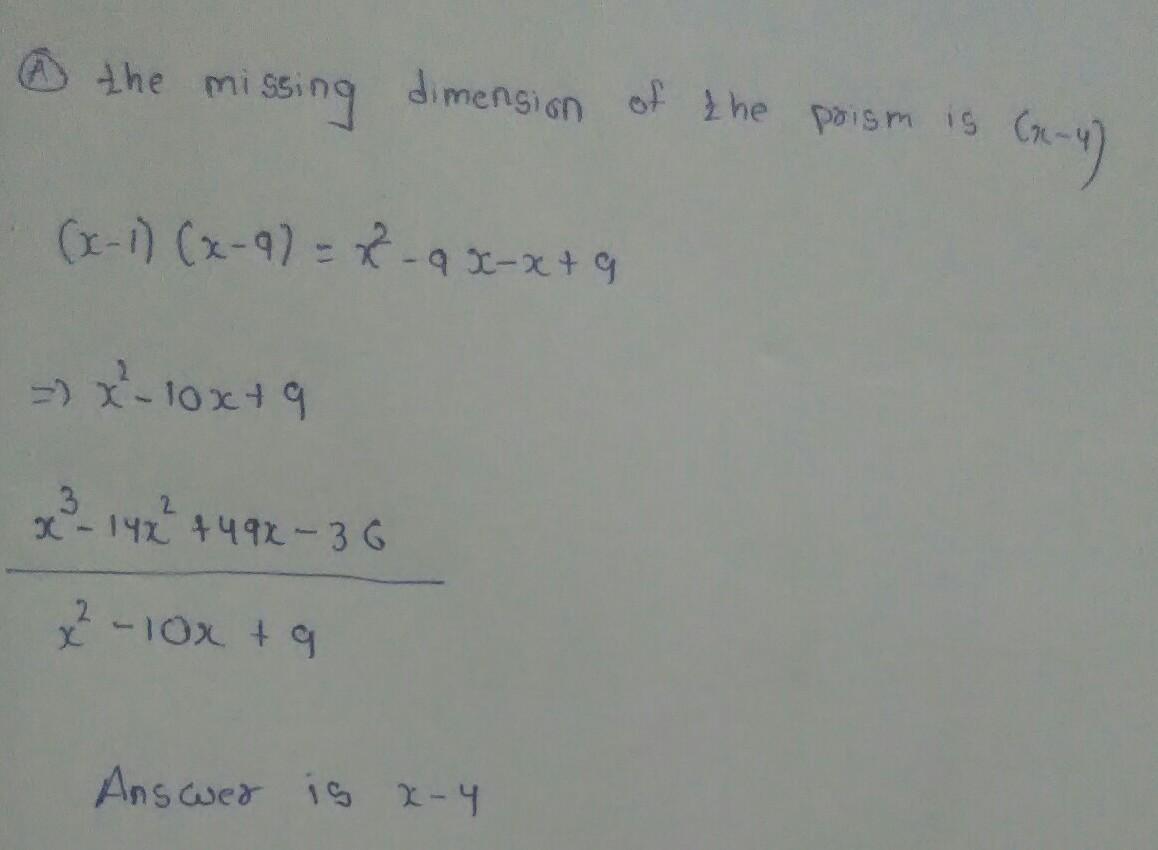 Ⓐ the missing dimension of the prism is (x-4)
(x-1) (x-9) = x² - 9x-x + 9
=> x² - 10x + 9
x³ - 14x² + 49x - 36
x² - 10x + 9
Answer is x-4